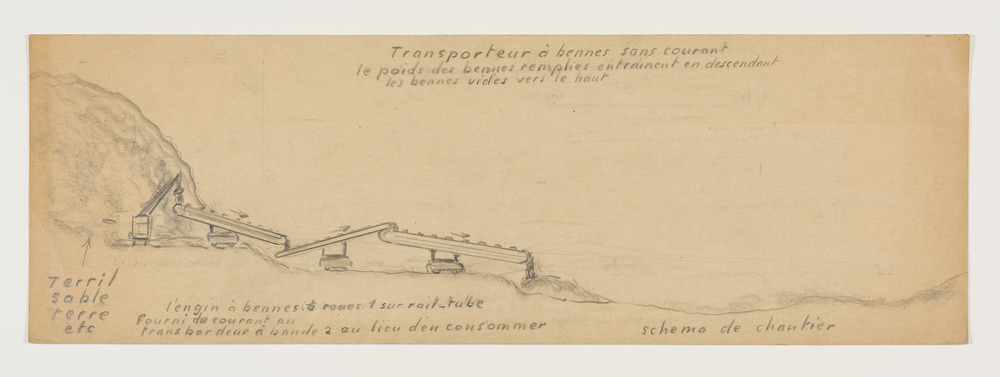 Transporteur à bennes sans courant
le poids des bennes remplies entrainent en descendant
les bennes vides vers le haut
Terril
sable
terre
etc
l'engin à bennes à roues 1 sur rail-tube
fourni du courant au
transbordeur à bande 2 au lieu d'en consommer
schema de chantier